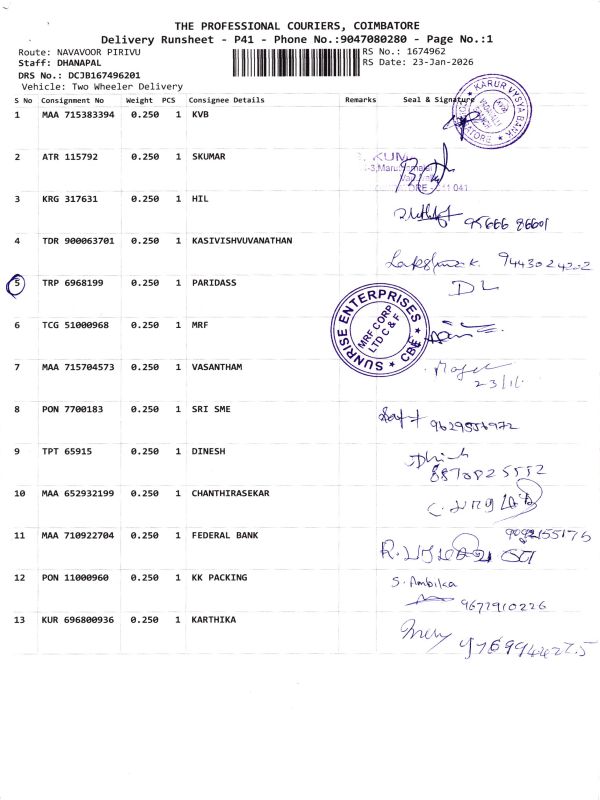 THE PROFESSIONAL COURIERS, COIMBATORE
Delivery Runsheet - P41 - Phone No.:9047080280 - Page No.:1
Route: NAVAVOOR PIRIVU
RS No.: 1674962
Staff: DHANAPAL
RS Date: 23-Jan-2026
DRS No.: DCJB167496201
Vehicle: Two Wheeler Delivery
S No Consignment No Weight PCS Consignee Details Remarks Seal & Signature
KARUR VYSYA BANK
1 MAA 715383394 0.250 1 KVB
2 ATR 115792 0.250 1 SKUMAR
3 KRG 317631 0.250 1 HIL
95666 86601
4 TDR 900063701 0.250 1 KASIVISHVUVANATHAN
9443024202
5 TRP 6968199 0.250 1 PARIDASS DL
SUNRISE ENTERPRISES
MRF CORP
LTD C & F
CBE
6 TCG 51000968 0.250 1 MRF
7 MAA 715704573 0.250 1 VASANTHAM
8 PON 7700183 0.250 1 SRI SME
9629556972
9 TPT 65915 0.250 1 DINESH
8870825552
10 MAA 652932199 0.250 1 CHANTHIRASEKAR
11 MAA 710922704 0.250 1 FEDERAL BANK
12 PON 11000960 0.250 1 KK PACKING S. Ambika
9677910226
13 KUR 696800936 0.250 1 KARTHIKA